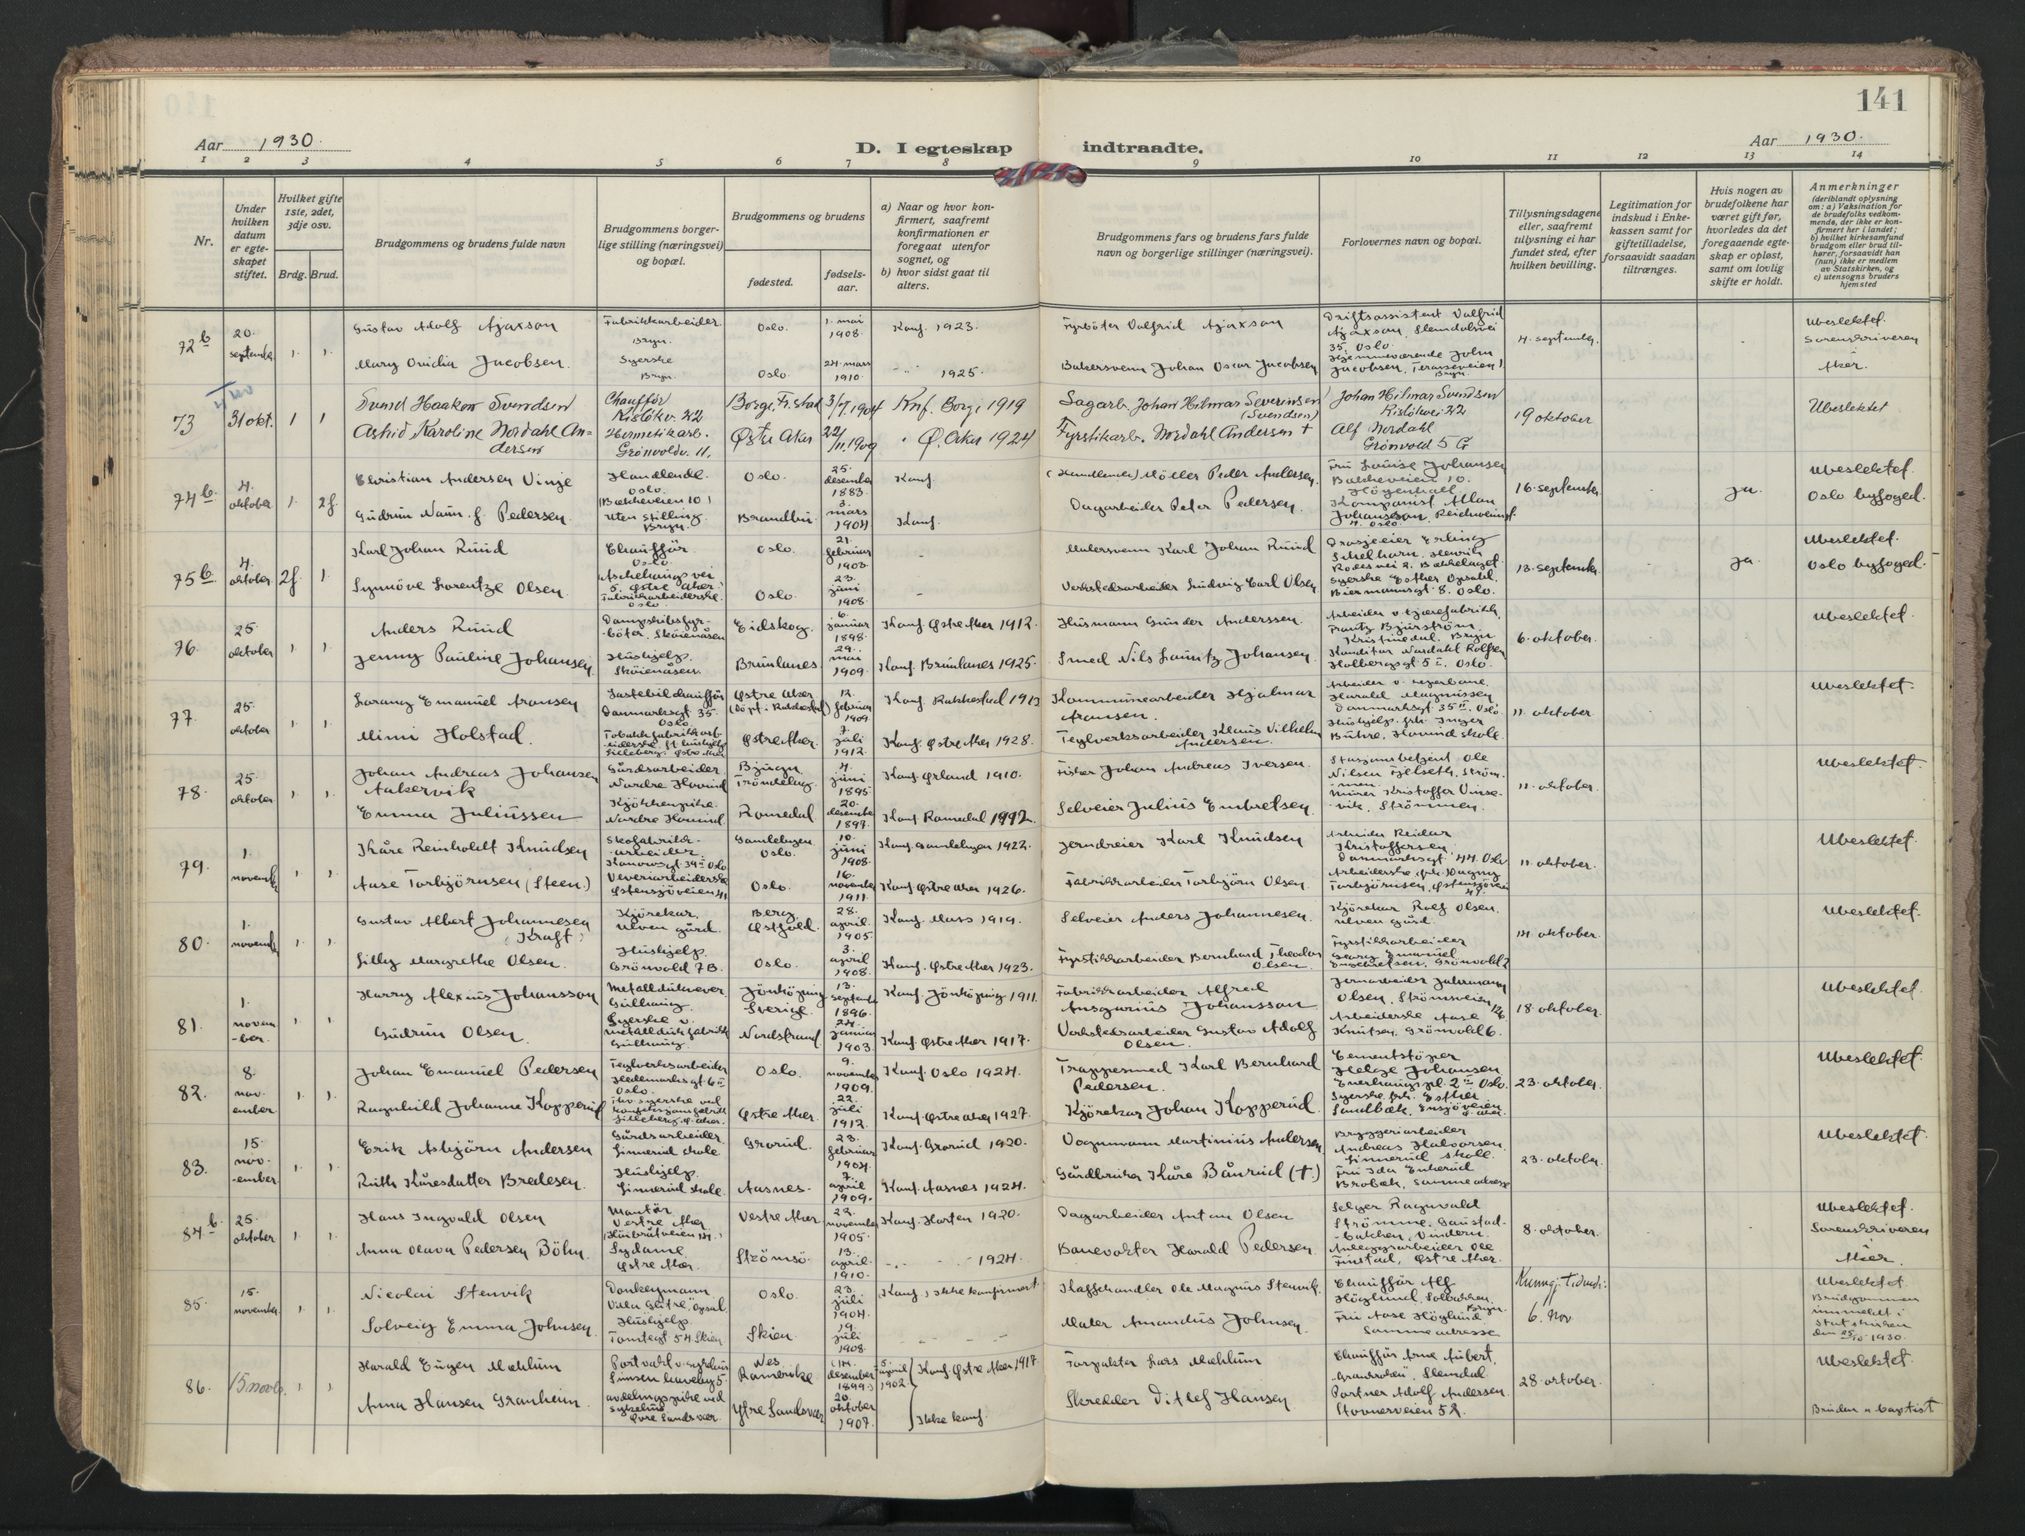 141
Aar 1930.
D. I egteskap indtraadte.
Aar 1930.
1 2 3 4 5 6 7 8 9 10 11 12 13 14
Nr.
Under hvilken datum er egteskapet stiftet.
Hvilket gifte 1ste, 2det, 3dje osv.
Brdg. Brud.
Brudgommens og brudens fulde navn
Brudgommens borgerlige stilling (næringsvei) og bopæl.
Brudgommens og brudens
fødested.
fødselsaar.
a) Naar og hvor konfirmert, saafremt konfirmationen er foregaat utenfor sognet, og
b) hvor sidst gaat til alters.
Brudgommens fars og brudens fars fulde navn og borgerlige stillinger (næringsvei).
Forlovernes navn og bopæl.
Tillysningsdagene eller, saafremt tillysning ei har fundet sted, efter hvilken bevilling.
Legitimation for indskud i Enkekassen samt for giftetilladelse, forsaavidt saadan tiltrænges.
Hvis nogen av brudefolkene har været gift før, hvorledes da det foregaaende egteskap er opløst, samt om lovlig skifte er holdt.
Anmerkninger (deriblandt oplysning om: a) Vaksination for de brudefolks vedkommende, der ikke er konfirmert her i landet; b) hvilket kirkesamfund brudgom eller brud tilhører, forsaavidt han (hun) ikke er medlem av Statskirken, og c) utensogns bruders hjemsted
72 b 20. september 1. 1.
Gustav Adolf Ajaxson Fabrikkarbeider. Bryn. Oslo. 1. mai 1908. Konf. 1923. Fyrböter Valfrid Ajaxson Driftsassistent Valfrid Ajaxson, Slemdalsvei 35, Oslo. 4. september. Ubeslektet. Sorenskriveren i Aker.
Mary Ovidia Jacobsen. Syerske Bryn. Oslo. 24. mars 1910. 1925. Bakersvenn Johan Oscar Jacobsen Hjemmeværende John Jacobsen, Bryn.
73 31 okt. 1 1
Svend Haakon Svendsen Chauffør Kislökv. 22 Borge, Fr.stad 1904 Knf. Borge 1919 Sagarb. Johan Hilmar Severinsen (Svendsen) Johan Hilmar Svendsen Kislökvei 22 19 oktober Ubeslektet
Astrid Karoline Nordahl Andersen Hermetikarb. Grönvoldv. 11. Østre Aker 1909 Ø. Aker 1924 Fyrstikarb. Nordahl Andersen + Alf Nordahl Grönvold 5 G
74 b. 4. oktober 1. 2f.
Christian Andersen Vinje Handlende. Oslo. Oslo. 25. desember 1883. Konf (Handlende) Möller Peder Andersen. Fru Louise Johansen Bækkeveien 10. 16. september ja. Ubeslektet. Oslo byfoged.
Gudrun Naim. f. Pedersen. Uten stilling. Bryn. Brandbu. 3. mars 1904 Konf. Dagarbeider Peter Pedersen.
75 b. 4. oktober. 2f. 1.
Karl Johan Ruud Chauffør Oslo. Oslo. 21. februar 1903. Malersvenn Karl Johan Ruud 13. september ja. Ubeslektet. Oslo byfoged.
Synnöve Lorentze Olsen. Fabrikkarbeiderske. Oslo. Oslo. 23. juni 1908. Verkstedsarbeider Ludvig Carl Olsen. Syerske Esther Opsahl, Biermannsgt 8. Oslo.
76. 25 oktober 1. 1.
Anders Ruud Dampskibsfyrböter. Sköienåsen Eidskog. 6. januar 1898. Konf Østre Aker 1912. Husmann Gunder Anderssen. Frantz Bjurström, Kristinedal, Bryn 6. oktober. Ubeslektet
Jenny Pauline Johansen. Hushjelp. Sköienåsen. Brunlanes. 29. mai 1909. Konf. Brunlanes 1925. Smed Nils Lauritz Johansen. Konditor Nordahl Rolfsen Holbergsgt 5 I. Oslo.
77. 25. oktober 1. 1.
Lorang Emanuel Aronsen Lastebilchauffør Danmarksgt. 35. Oslo. Østre Aker (döpt i Rakkestad) 12. februar 1909. Konf. Rakkestad 1923 Kommunearbeider Hjalmar Aronsen. Harald Magnussen Danmarksgt. 35 II. Oslo. 11. oktober Ubeslektet.
Mimi Holstad. Østre Aker. 7. juli 1912. Konf. Østre Aker 1928. Teglverksarbeider Klaus Vilhelm Andersen.
78. 25 oktober 1. 1.
Johan Andreas Johansen Aakervik Gårdsarbeider. Nordre Hovind Bjugn, Tröndelag. 4. juni 1895 Konf Ørland 1910. Fisker Johan Andreas Iversen. 11. oktober. Ubeslektet.
Emma Juliussen Kjökkenpike. Nordre Hovind. Romedal 20. desember 1897. Konf Romedal 1912. Selveier Julius Embretsen
79. 1. november 1. 1.
Kåre Reinholdt Knudsen Skofabrikkarbeider Gamlebyen Oslo. 10. juni 1908. Konf. Gamlebyen 1922. Jerndreier Karl Knudsen Arbeider Reidar Kristoffersen, Danmarksgt. 44. Oslo 11. oktober. Ubeslektet.
Aase Torbjörnsen (Steen.) Veveriarbeiderske Oslo. 16. november 1911. Konf Østre Aker 1926. Fabrikkarbeider Torbjörn Olsen.
80. 1. november. 1. 1.
Gustav Albert Johannesen (Kraft) Kjörekar. Ulven gård. Berg, Østfold. 28. april 1905. Konf. Moss 1919. Selveier Anders Johannesen. Kjörekar Rolf Olsen, Ulven gård. 14. oktober. Ubeslektet.
Lilly Margrethe Olsen. Hushjelp. Grönvold 7 B. Oslo. 3. april 1908. Konf. Østre Aker 1923. Fyrstikkarbeider Bernhard Theodor Olsen. Fyrstikkarbeider
81. 1. november. 1. 1.
Harry Alexius Johansson Jönköping Sverige. 13. september 1896. Konf. Jönköping 1911. Fabrikkarbeider Alfred Ansgarius Johansson Olsen, Strömsveien 126 18. oktober Ubeslektet.
Gudrun Olsen. Nordstrand 24. januar 1903. Konf Østre Aker 1917. Verkstedsarbeider Gustav Adolf Olsen. Arbeiderske Aase Knutsen, Grönvold 6.
82. 8. november 1. 1.
Johan Emanuel Pedersen Teglverksarbeider Hedemarksgt 6 II Oslo. Oslo. 9. november 1909. Konf. Oslo 1924. Trappesmed Karl Bernhard Pedersen. Cementstöper Helge Johansen Enerhaugspl. 2 II Oslo. 23. oktober. Ubeslektet.
Ragnhild Johanne Kopperud Østre Aker. 22. juli 1912. Konf. Østre Aker 1927. Kjörekar Johan Kopperud.
83. 15. november 1. 1.
Erik Asbjörn Andersen Gårdsarbeider. Linnerud skole Grorud. 23. februar 1904. Konf. Grorud 1920. Vognmann Martinius Andersen Bryggeriarbeider Andreas Halvorsen Linnerud skole. 23. oktober. Ubeslektet.
Ruth Kåresdatter Bredesen. Hushjelp. Linnerud skole. Aasnes. 7. april 1909. Konf. Aasnes 1924. Gårdbruker Kåre Bånrud (+.)
84 b 25. oktober 1. 1.
Hans Ingvald Olsen Montör Vestre Aker Vestre Aker 22. november 1905. Konf. Horten 1920. Dagarbeider Anton Olsen Selger Ragnvald Strömme, Gaustadbakken, Vindern. 8. oktober. Ubeslektet. Sorenskriveren i Aker.
Anna Olava Pedersen Böhn. Sydame. Østre Aker. Strömsö. 13. april 1910. 1924. Banevokter Harald Pedersen. Anleggsarbeider Ole Finstad, Østre Aker.
85. 15. november. 1. 1.
Nicolai Stenvik Donkeymann Oslo. 23. juli 1904. Konf, ikke konfirmert Ole Magnus Stenvik. Chauffør Alf Höglund, Solbakken, Bryn. Kunngj. Tidende: 6. Nov Ubeslektet. Brudgommen innmeldt i statskirken den 25/10 1930.
Solveig Emma Johnsen. Hushjelp. Skien. 19. juli 1908. Maler Amandus Johnsen. Fru Aase Höglund. Samme adresse
86. 15 novb. 1. 1.
Harald Eugen Mæhlum Nes, Romerike 14. desember 1899. 5. april 1902. Konf Østre Aker 1917. Forpakter Lars Mæhlum Chauffør Arne Aubert, 28. oktober. Ubeslektet.
Anna Hansen Granheim. Øvre Sandsvær. Ytre Sandsvær 20. oktober 1907. Ikke konf. Skredder Ditlef Hansen. Portner Adolf Andersen. Stovnerveien 52. Bruden er baptist.